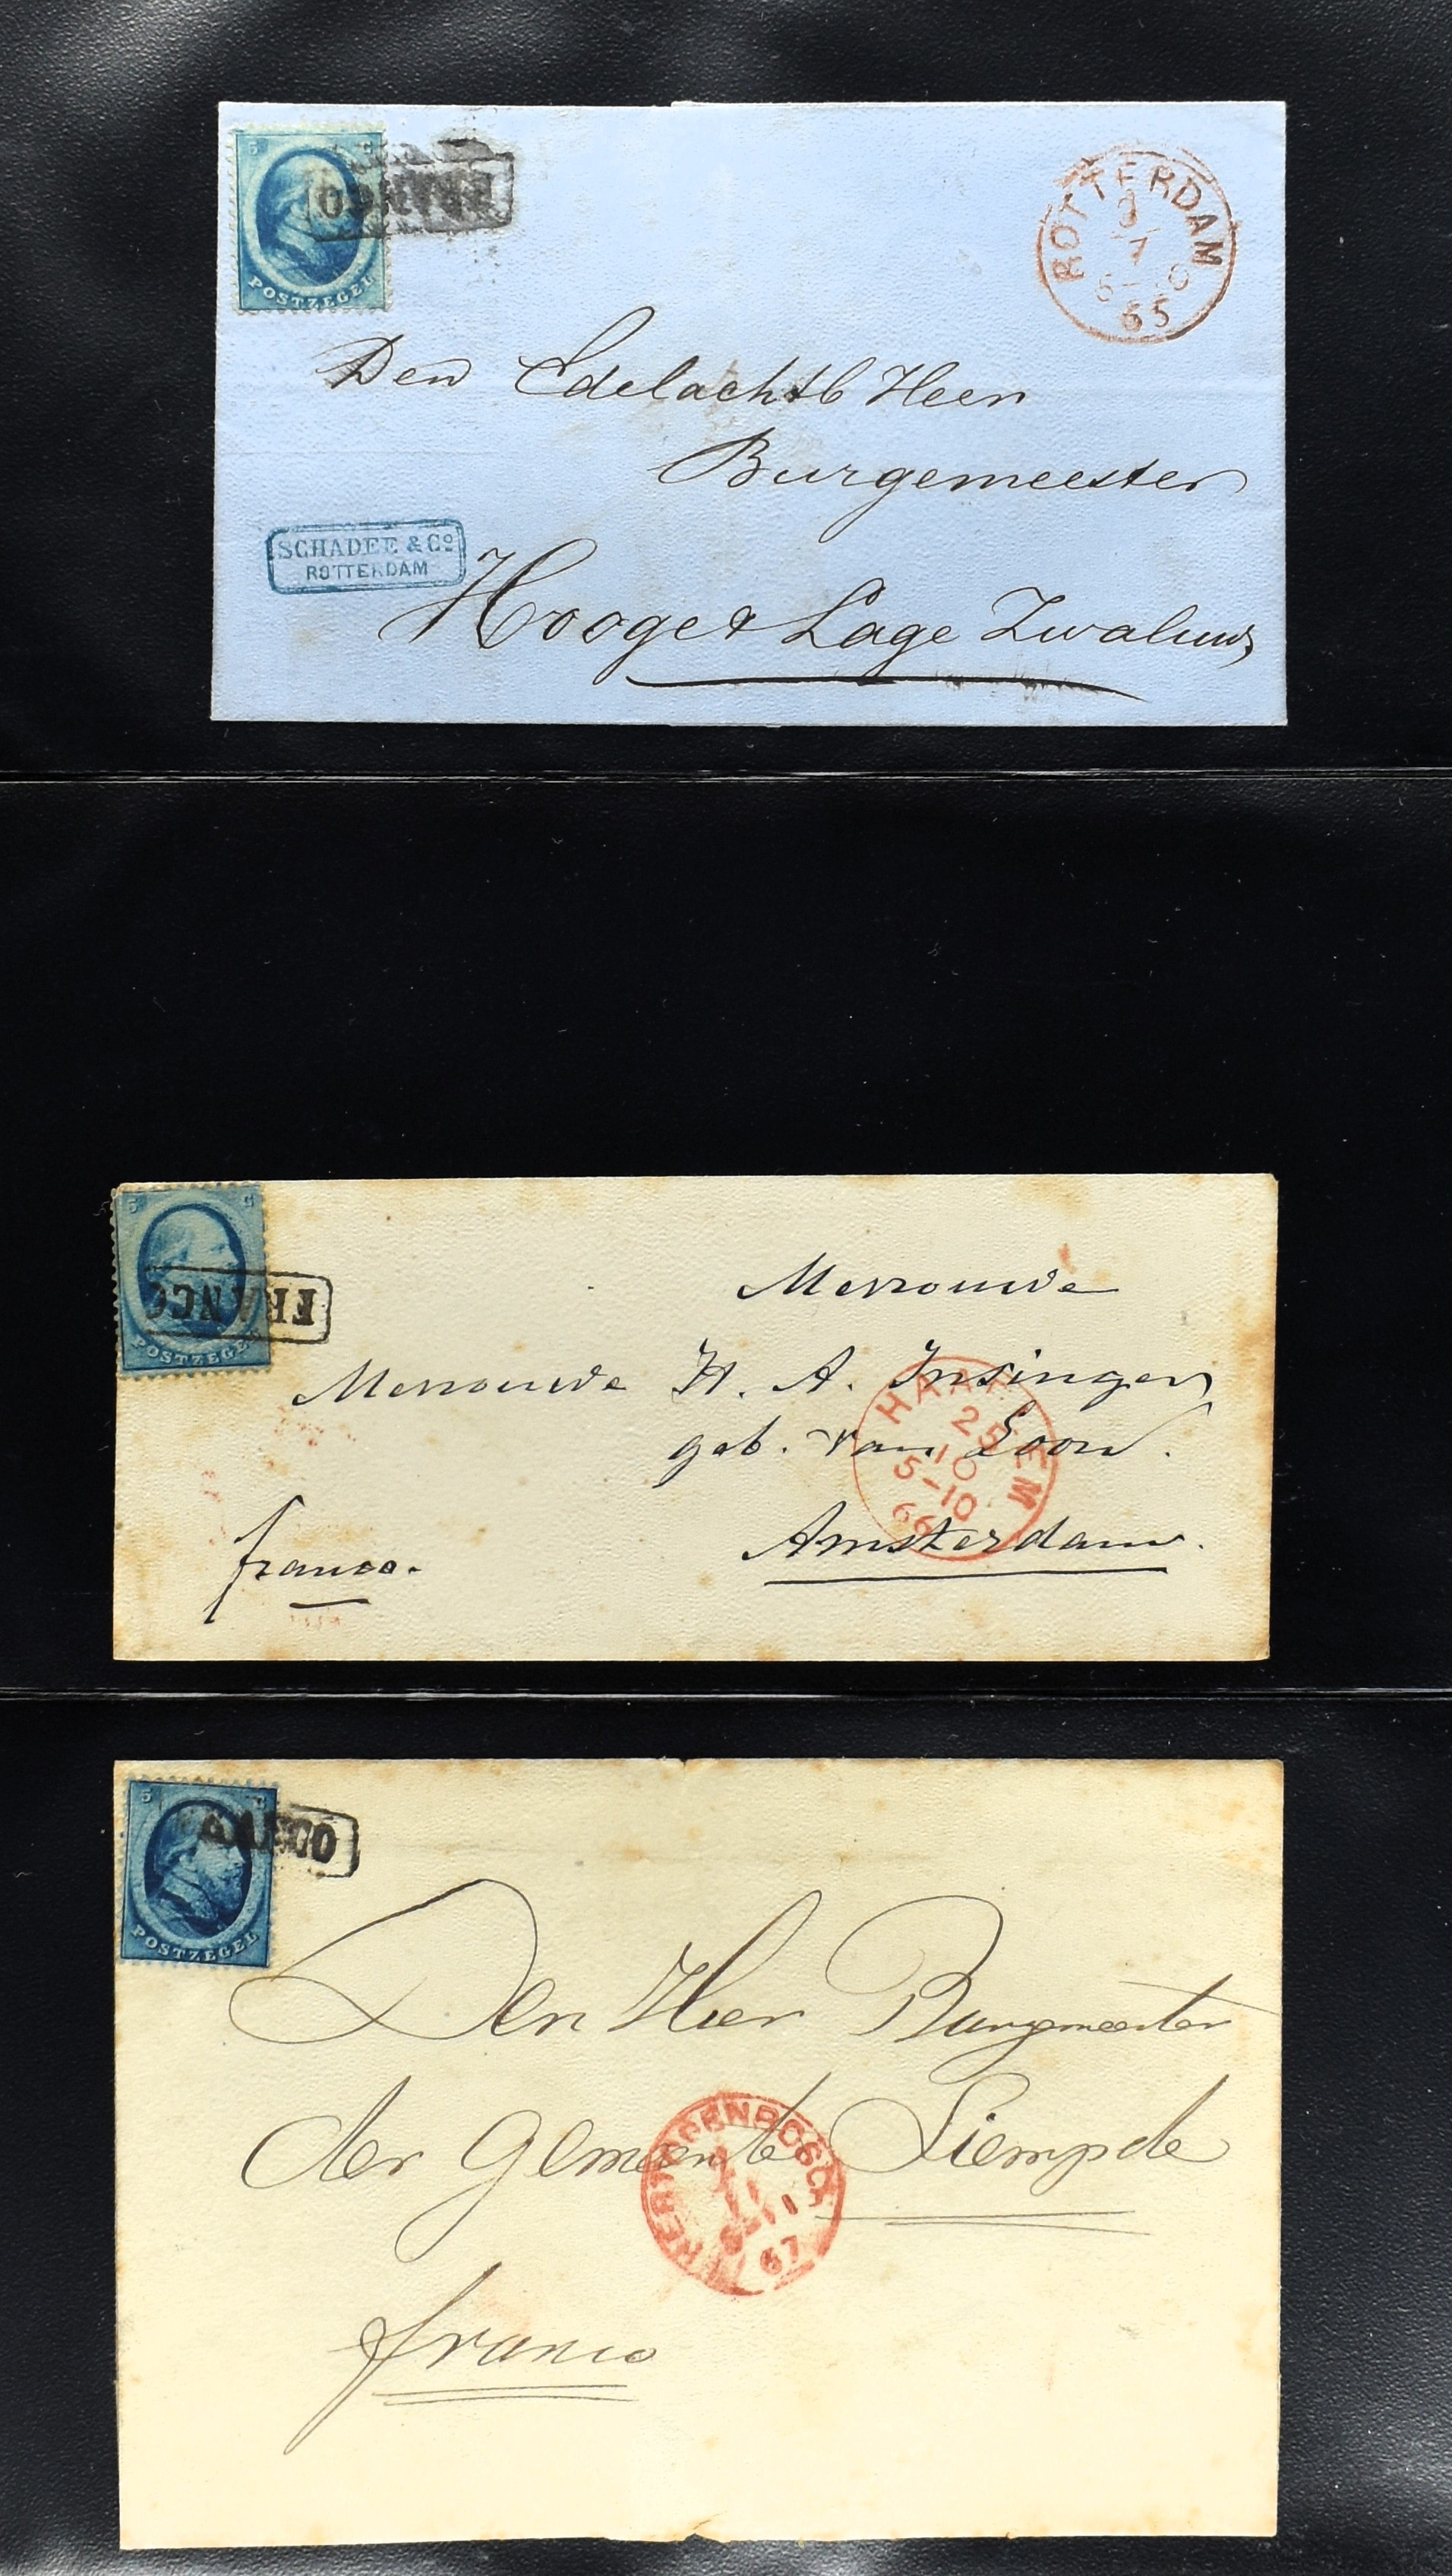 5 C
FRANCO
POSTZEGEL
ROTTERDAM
65
Den Edelachtb Heer
Burgemeester
SCHADEE & Cº
ROTTERDAM
Hooge & Lage Zwaluwe
5 C
FRANCO
POSTZEGEL
Mevrouwe
Mevrouwe H. A. Insinger
geb. van Loon.
HAARLEM
25
10
5-10
66
Amsterdam.
franco.
5 C
FRANCO
POSTZEGEL
Den Heer Burgemeester
der Gemeente Liempde
'S HERTOGENBOSCH
67
franco